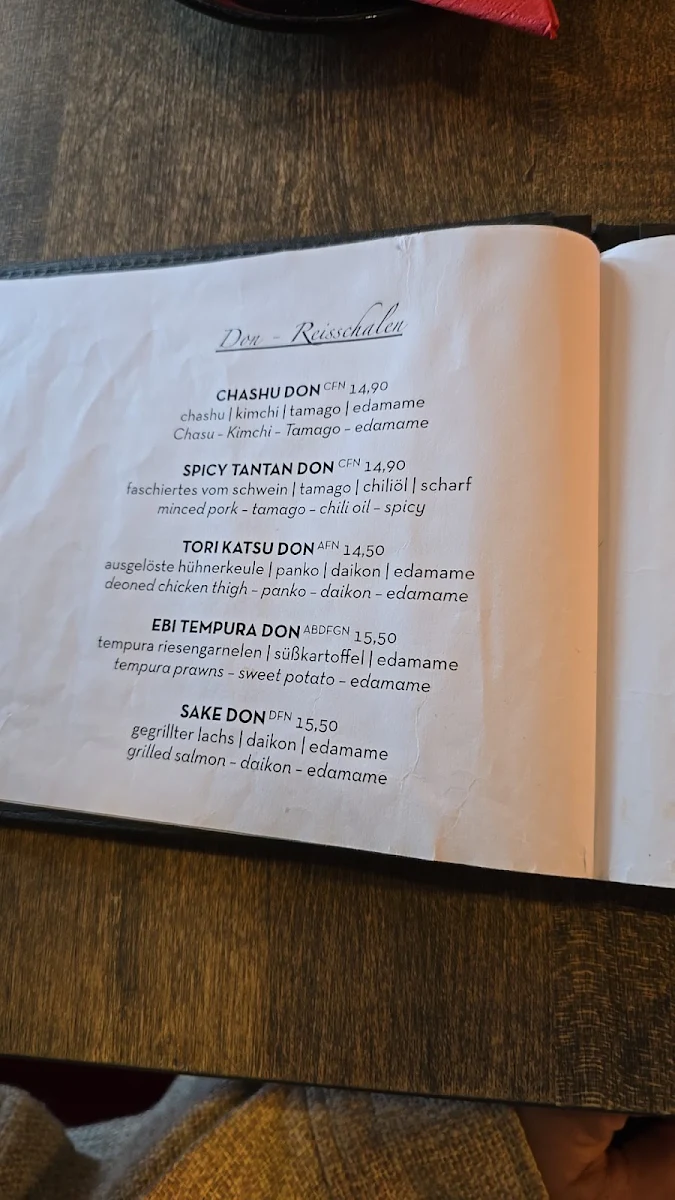 Don - Reisschalen
CHASHU DON CFN 14,90
chashu | kimchi | tamago | edamame
Chasu - Kimchi - Tamago - edamame
SPICY TANTAN DON CFN 14,90
faschiertes vom schwein | tamago | chiliöl | scharf
minced pork - tamago - chili oil - spicy
TORI KATSU DON AFN 14,50
ausgelöste hühnerkeule | panko | daikon | edamame
deoned chicken thigh - panko - daikon - edamame
EBI TEMPURA DON ABDFGN 15,50
tempura riesengarnelen | süßkartoffel | edamame
tempura prawns - sweet potato - edamame
SAKE DON DFN 15,50
gegrillter lachs | daikon | edamame
grilled salmon - daikon - edamame